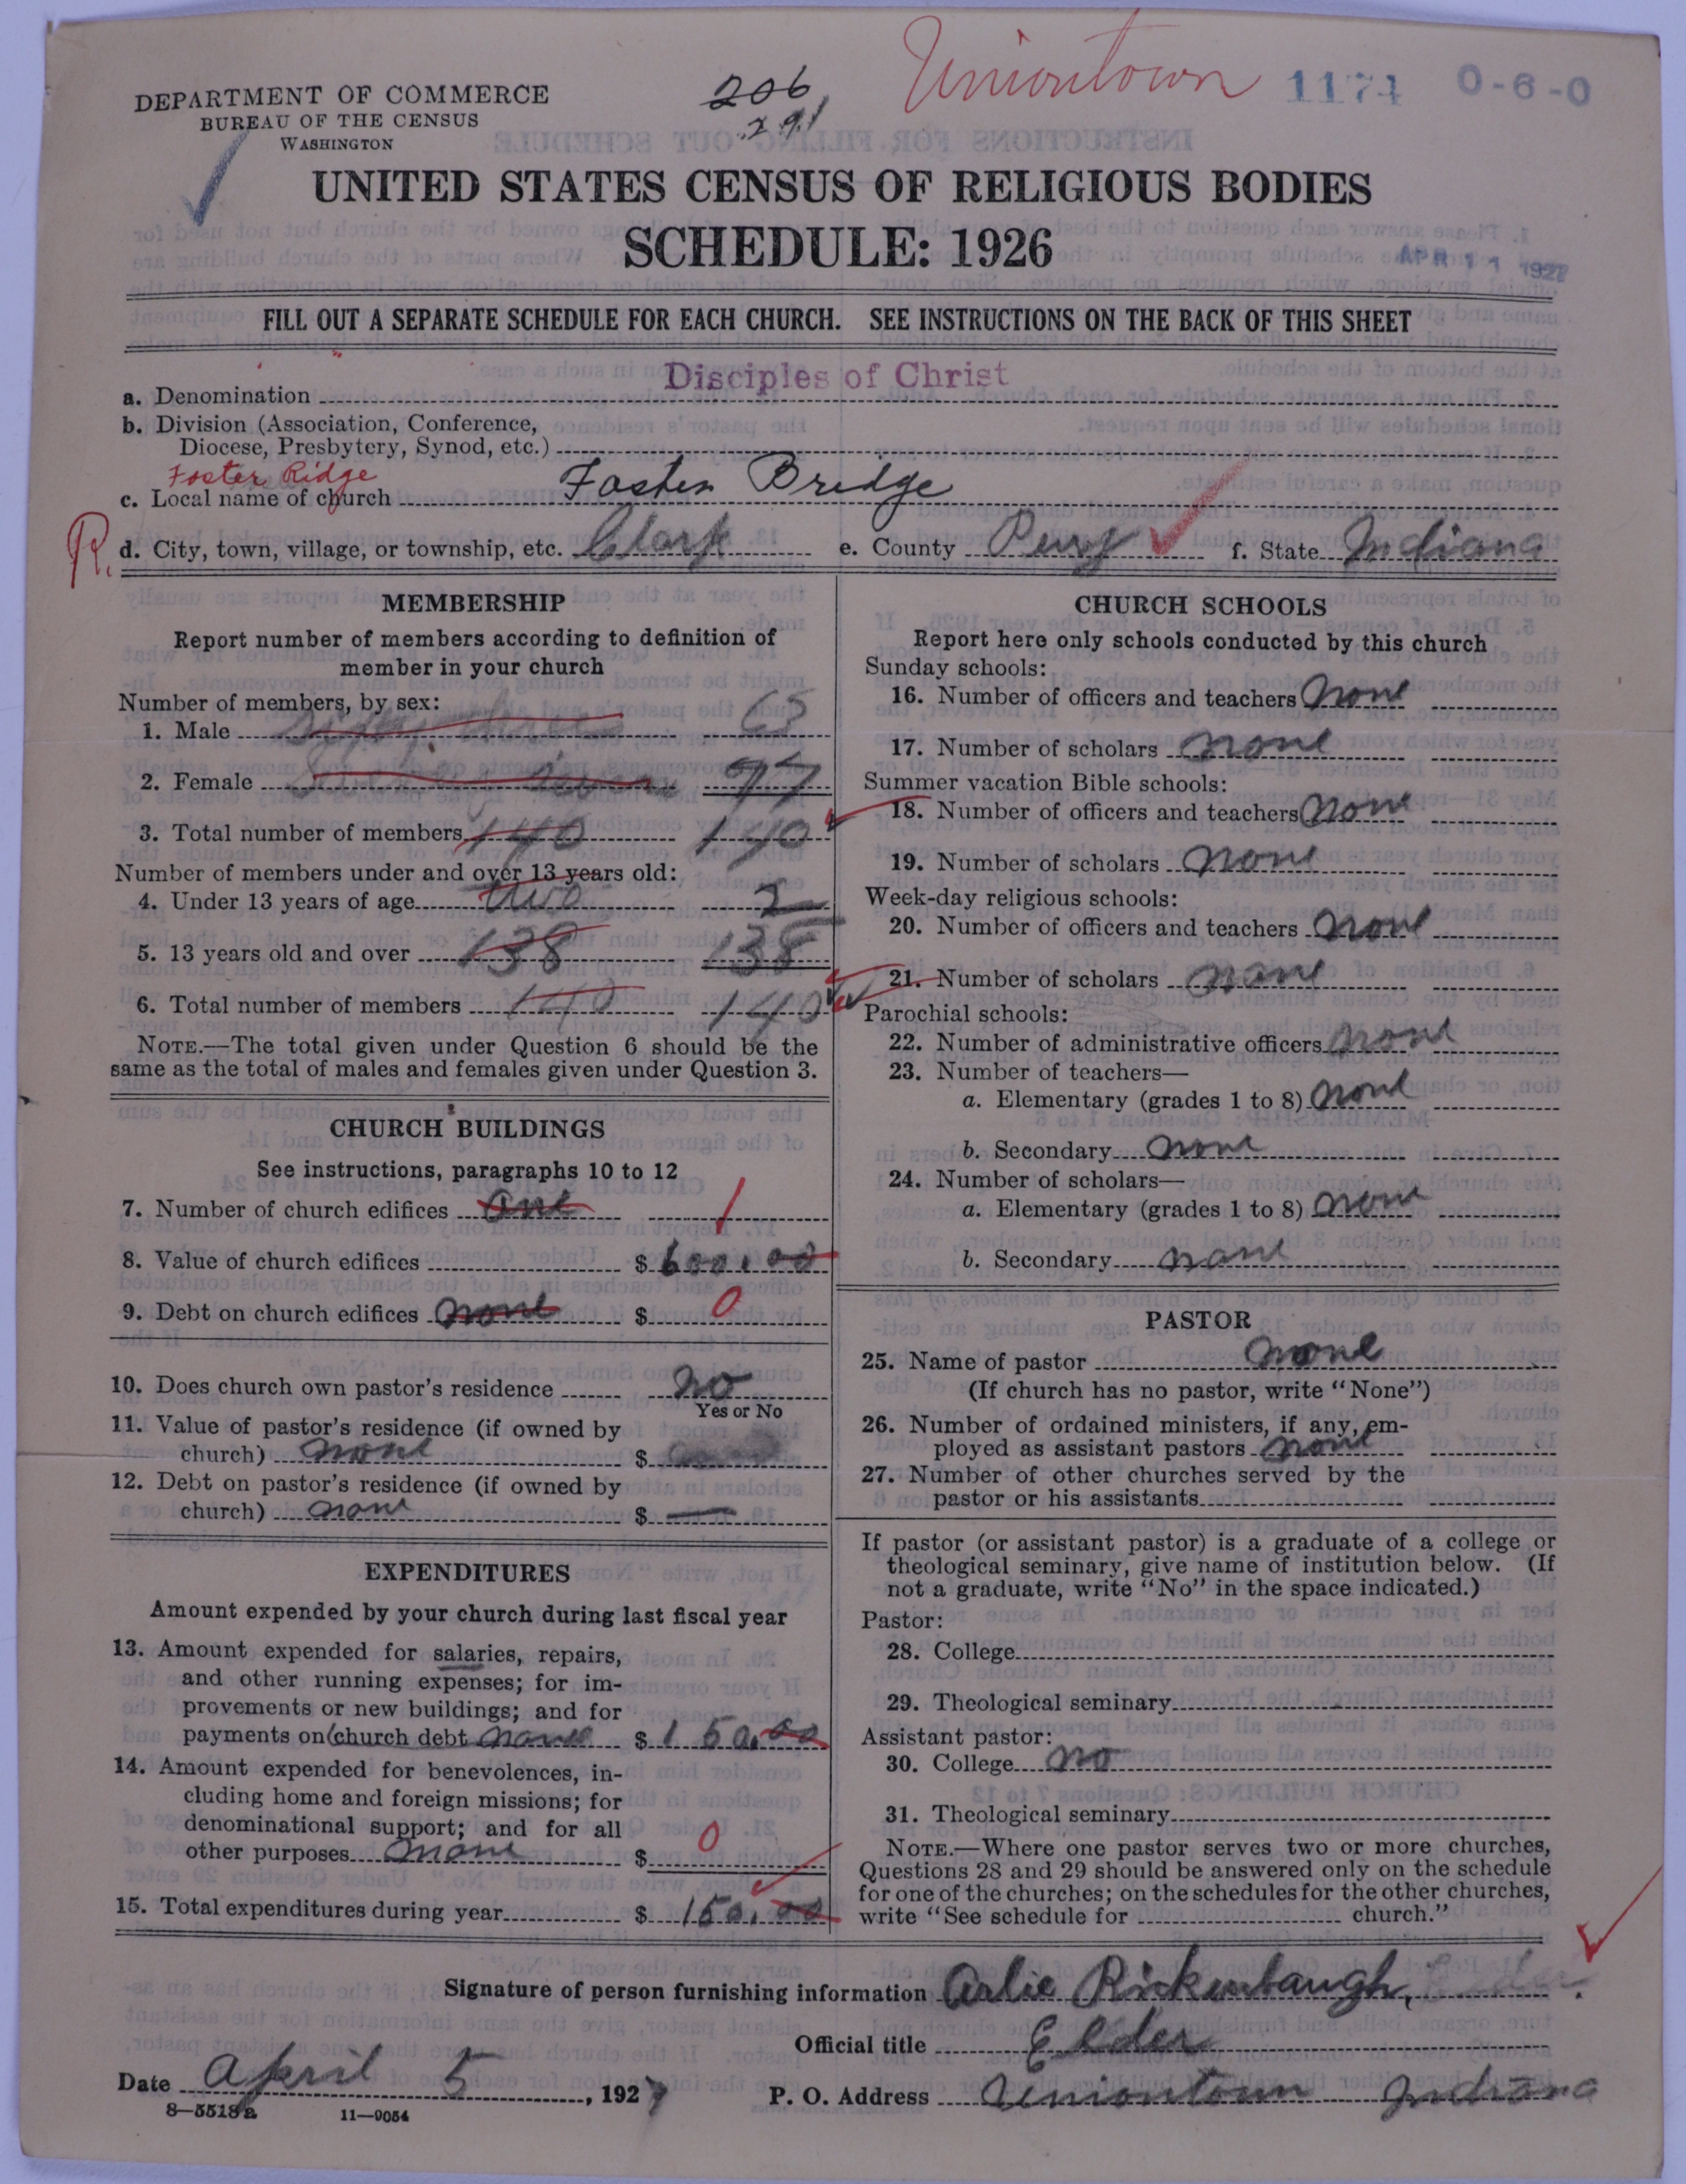 Uniontown 1174 0-6-0
DEPARTMENT OF COMMERCE
BUREAU OF THE CENSUS
WASHINGTON
206
291
UNITED STATES CENSUS OF RELIGIOUS BODIES
SCHEDULE: 1926
APR 11 1927
FILL OUT A SEPARATE SCHEDULE FOR EACH CHURCH. SEE INSTRUCTIONS ON THE BACK OF THIS SHEET
a. Denomination Disciples of Christ
b. Division (Association, Conference,
Diocese, Presbytery, Synod, etc.)
Foster Ridge
c. Local name of church Foster Bridge
R. d. City, town, village, or township, etc. Clark e. County Perry f. State Indiana
MEMBERSHIP
Report number of members according to definition of
member in your church
Number of members, by sex:
1. Male 63
2. Female 77
3. Total number of members 140 140
Number of members under and over 13 years old:
4. Under 13 years of age two 2
5. 13 years old and over 138 138
6. Total number of members 140 140
NOTE.—The total given under Question 6 should be the
same as the total of males and females given under Question 3.
CHURCH BUILDINGS
See instructions, paragraphs 10 to 12
7. Number of church edifices one 1
8. Value of church edifices $ 600.00
9. Debt on church edifices none $ 0
10. Does church own pastor's residence No
Yes or No
11. Value of pastor's residence (if owned by
church) none $
12. Debt on pastor's residence (if owned by
church) none $ —
EXPENDITURES
Amount expended by your church during last fiscal year
13. Amount expended for salaries, repairs,
and other running expenses; for im-
provements or new buildings; and for
payments on church debt none $ 150.00
14. Amount expended for benevolences, in-
cluding home and foreign missions; for
denominational support; and for all
other purposes none $ 0
15. Total expenditures during year $ 150.00
CHURCH SCHOOLS
Report here only schools conducted by this church
Sunday schools:
16. Number of officers and teachers none
17. Number of scholars none
Summer vacation Bible schools:
18. Number of officers and teachers none
19. Number of scholars none
Week-day religious schools:
20. Number of officers and teachers none
21. Number of scholars none
Parochial schools:
22. Number of administrative officers none
23. Number of teachers—
a. Elementary (grades 1 to 8) none
b. Secondary none
24. Number of scholars—
a. Elementary (grades 1 to 8) none
b. Secondary none
PASTOR
25. Name of pastor none
(If church has no pastor, write "None")
26. Number of ordained ministers, if any, em-
ployed as assistant pastors none
27. Number of other churches served by the
pastor or his assistants
If pastor (or assistant pastor) is a graduate of a college or
theological seminary, give name of institution below. (If
not a graduate, write "No" in the space indicated.)
Pastor:
28. College
29. Theological seminary
Assistant pastor:
30. College no
31. Theological seminary
NOTE.—Where one pastor serves two or more churches,
Questions 28 and 29 should be answered only on the schedule
for one of the churches; on the schedules for the other churches,
write "See schedule for church."
Signature of person furnishing information Arlie Rickenbaugh,
Official title Elder
Date April 5, 1927 P. O. Address Uniontown Indiana
8—5518a 11—9054